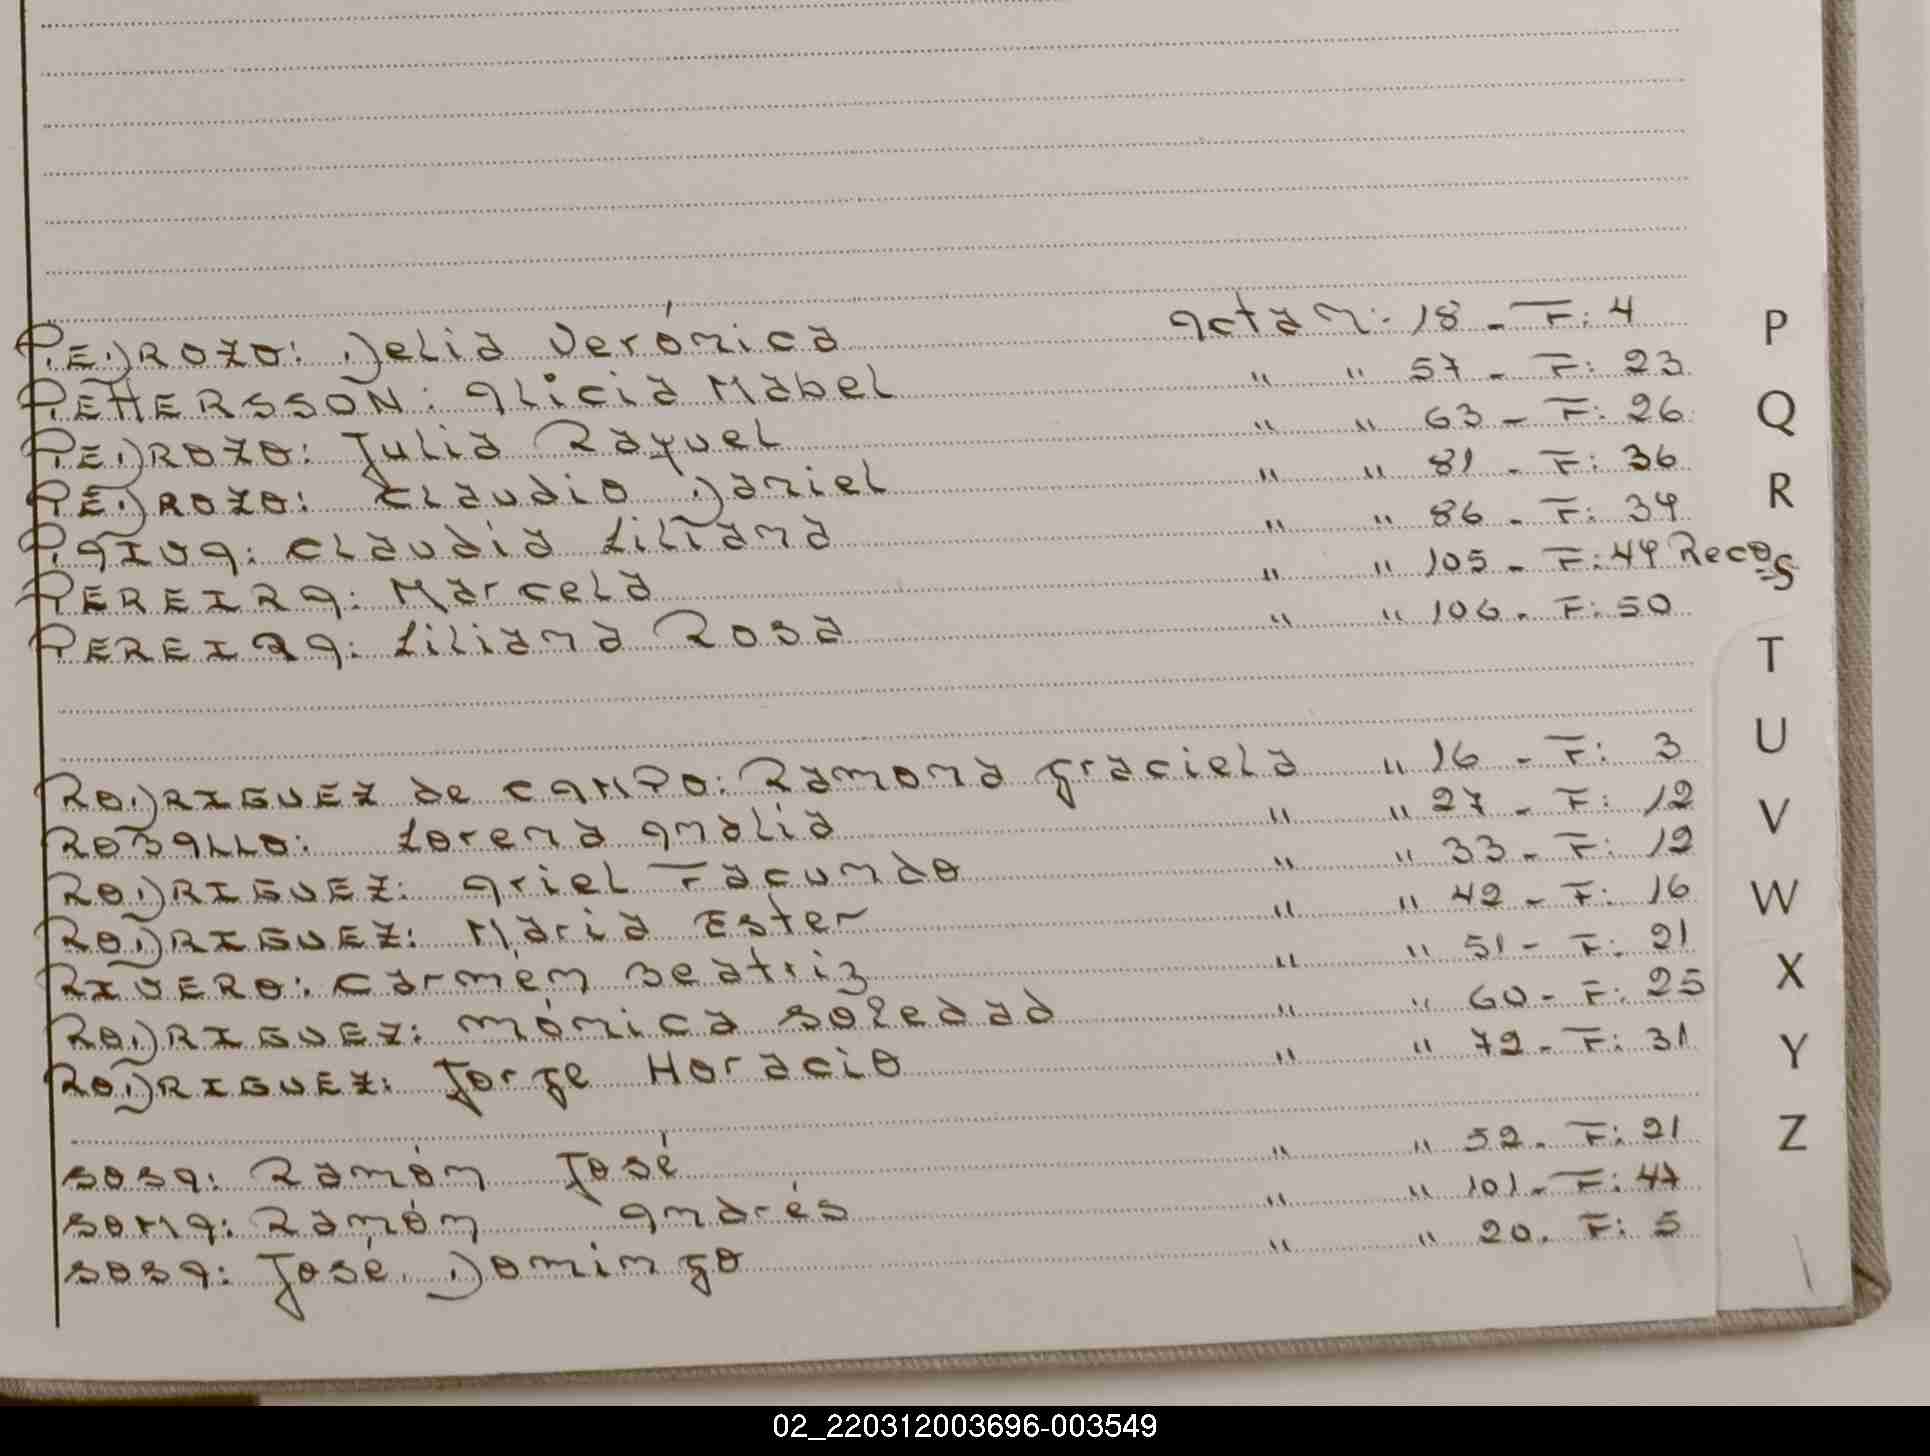 PEDROZO: Delia Verónica Acta n: 18 - F: 4
PETTERSSON: Alicia Mabel " " 57 - F: 23
PEDROZO: Julia Raquel " " 63 - F: 26
PEDROZO: Claudio Daniel " " 81 - F: 36
PAIVA: Claudia Liliana " " 86 - F: 39
PEREIRA: Marcela " " 105 - F: 49 Reco
PEREIRA: Liliana Rosa " " 106 - F: 50
RODRIGUEZ de CAMPO: Ramona Graciela " 16 - F: 3
ROBALLO: Lorena Analia " " 27 - F: 12
RODRIGUEZ: Ariel Facundo " " 33 - F: 12
RODRIGUEZ: Maria Ester " " 42 - F: 16
RIVERO: Carmén Beatriz " " 51 - F: 21
RODRIGUEZ: Mónica Soledad " " 60 - F: 25
RODRIGUEZ: Jorge Horacio " " 72 - F: 31
SOSA: Ramón José " " 52 - F: 21
SOMA: Ramón Andrés " " 101 - F: 47
SOSA: José Domingo " " 20. F: 5
P
Q
R
S
T
U
V
W
X
Y
Z
02_220312003696-003549